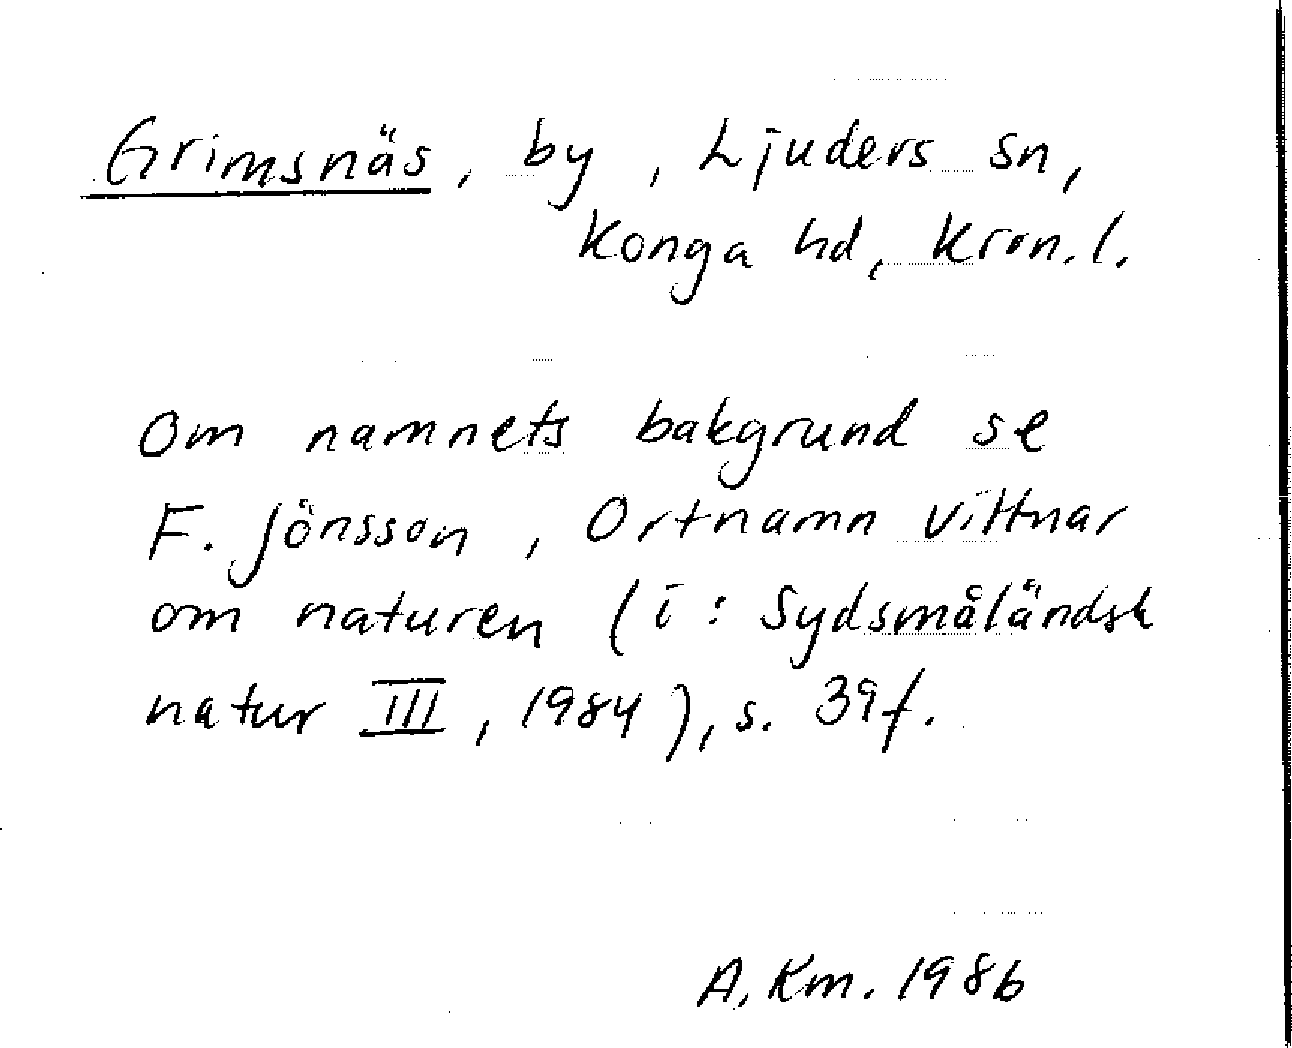 Grimsnäs, by, Ljuders sn,
Konga hd, Kron.l.
Om namnets bakgrund se
F. Jönsson, Ortnamn vittnar
om naturen (i: Sydsmåländsk
natur III, 1984), s. 39f.
A. Km. 1986